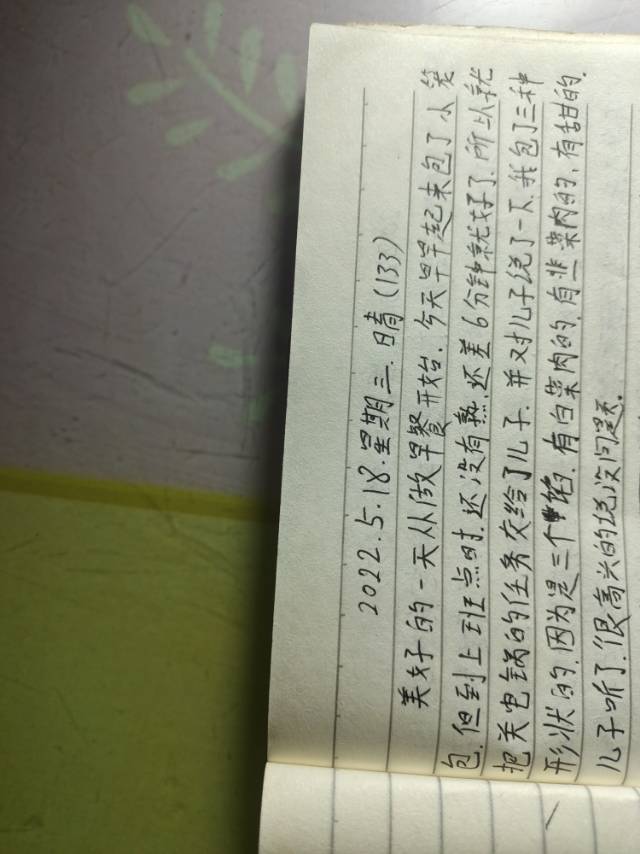 2022.5.18.星期三.晴(133)
美好的一天从做早餐开始.今天早早起来包了小笼
包.但到上班点时.还没有熟.还差6分钟就好了.所以就
把关电锅的任务交给了儿子.并对儿子说了一下.我包了三种
形状的.因为是三个馅.有白菜肉的.有韭菜肉的.有甜的.
儿子听了.很高兴的说没问题。